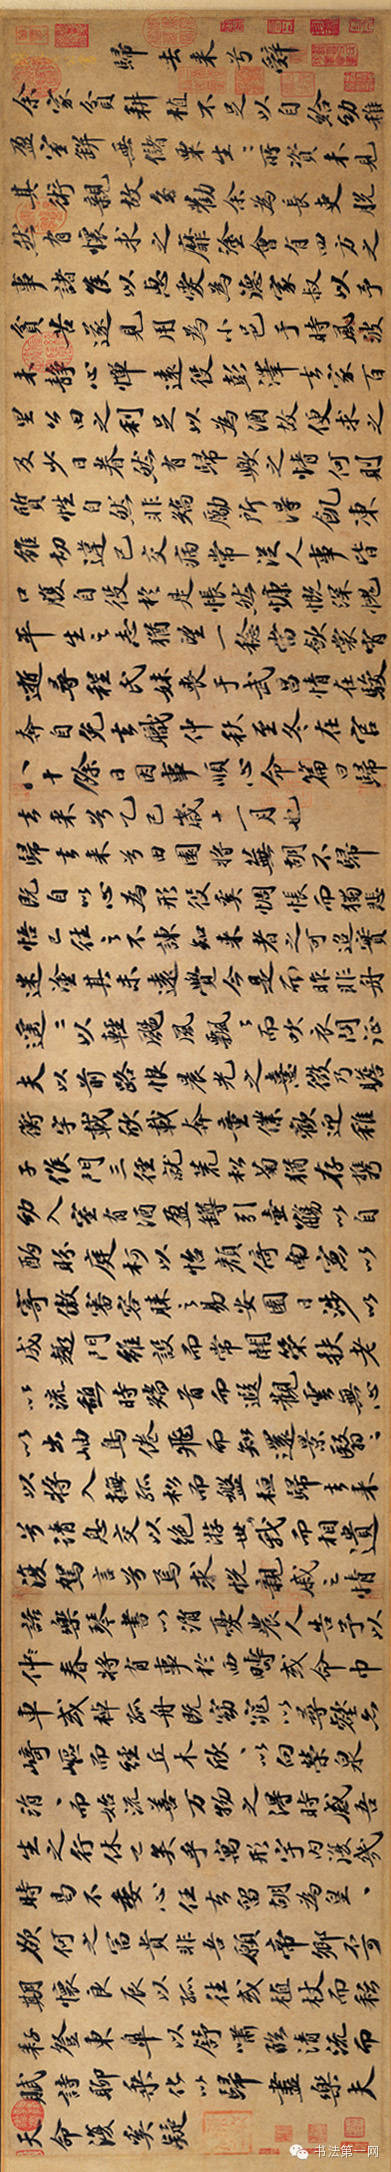 歸去来兮辭
余家貧耕植不足以自給幼稚
盈室缾無儲粟生〻所資未見
其術親故多勸余為長吏脫
然有懷求之靡塗會有四方之
事諸侯以惠愛為德家叔以予
貧苦遂見用為小邑于時風波
未静心憚遠役彭澤去家百
里公田之利足以為酒故便求之
及少日眷然有歸歟之情何則
質性自然非矯勵所得飢凍
雖切違己交病常從人事皆
口腹自役於是悵然慷慨深愧
平生之志猶望一稔當斂裳宵
逝尋程氏妹喪于武昌情在駿
奔自免去職仲秋至冬在官
八十餘日因事順心命篇曰歸
去来兮乙巳歲十一月也
歸去来兮田園將蕪胡不歸
既自以心為形役奚惆悵而獨悲
悟已往之不諫知来者之可追實
迷塗其未遠覺今是而昨非舟
遥〻以輕颺風飄〻而吹衣問征
夫以前路恨晨光之熹微乃瞻
衡宇載欣載奔童僕歡迎稚
子候門三徑就荒松菊猶存携
幼入室有酒盈罇引壺觴以自
酌眄庭柯以怡顏倚南窓以
寄傲審容膝之易安園日涉以
成趣門雖設而常關策扶老
以流憩時矯首而遐觀雲無心
以出岫鳥倦飛而知還景翳〻
以將入撫孤松而盤桓歸去来
兮請息交以絶游世我而相遺
復駕言兮焉求悅親戚之情
話樂琴書以消憂農人告予以
仲春將有事於西疇或命巾
車或棹孤舟既窈窕以尋壑亦
崎嶇而經丘木欣〻以向榮泉
涓〻而始流善万物之得時感吾
生之行休已矣乎寓形宇內復幾
時曷不委心任去留胡為皇〻
欲何之富貴非吾願帝鄉不可
期懷良辰以孤往或植杖而耘
耔登東皋以舒嘯臨清流而
賦詩聊乘化以歸盡樂夫
天命復奚疑
书法第一网